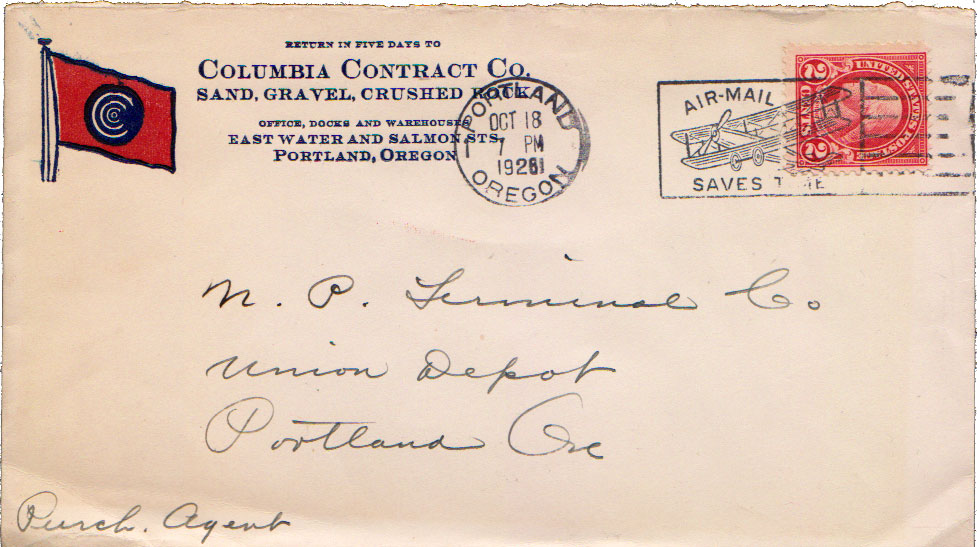 RETURN IN FIVE DAYS TO
COLUMBIA CONTRACT CO.
SAND, GRAVEL, CRUSHED ROCK
OFFICE, DOCKS AND WAREHOUSES
EAST WATER AND SALMON STS.
PORTLAND, OREGON
PORTLAND
OCT 18
7 PM
OREGON
AIR-MAIL
SAVES TIME
UNITED STATES POSTAGE
2 CENTS 2
N. P. Terminal Co
Union Depot
Portland Ore
Purch. Agent